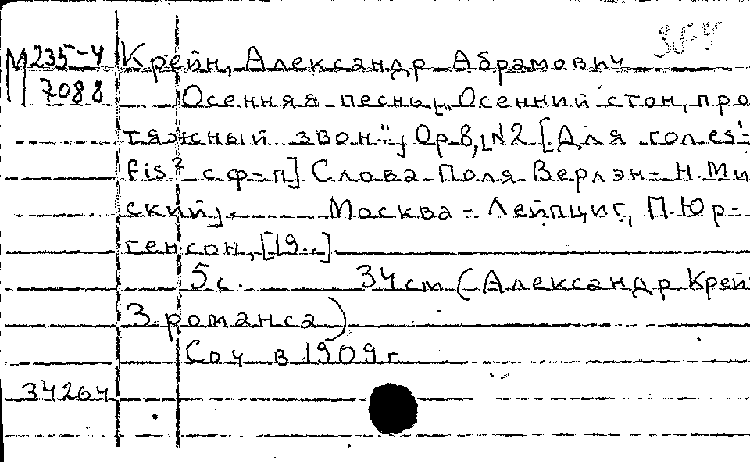 М 235-4 Крейн, Александр Абрамович
7088 Осенняя песнь [„Осенний стон, про
тяжный звон"], Op 8, N2 [Для гол es'-
fis² с ф-п] Слова Поля Верлэн-Н. Ми
ский]. Москва - Лейпциг, П. Юр-
генсон, [19..]
5 с. 34 см (Александр Крей
3 романса)
Соч в 1909 г
34264